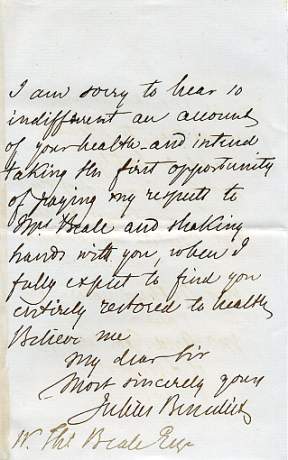 I am sorry to hear so
indifferent an account
of your health - and intend
taking the first opportunity
of paying my respects to
Mrs Beale and shaking
hands with you, when I
fully expect to find you
entirely restored to health
Believe me
My dear Sir
Most sincerely yours
Julius Benedict
W. Beale Esqr